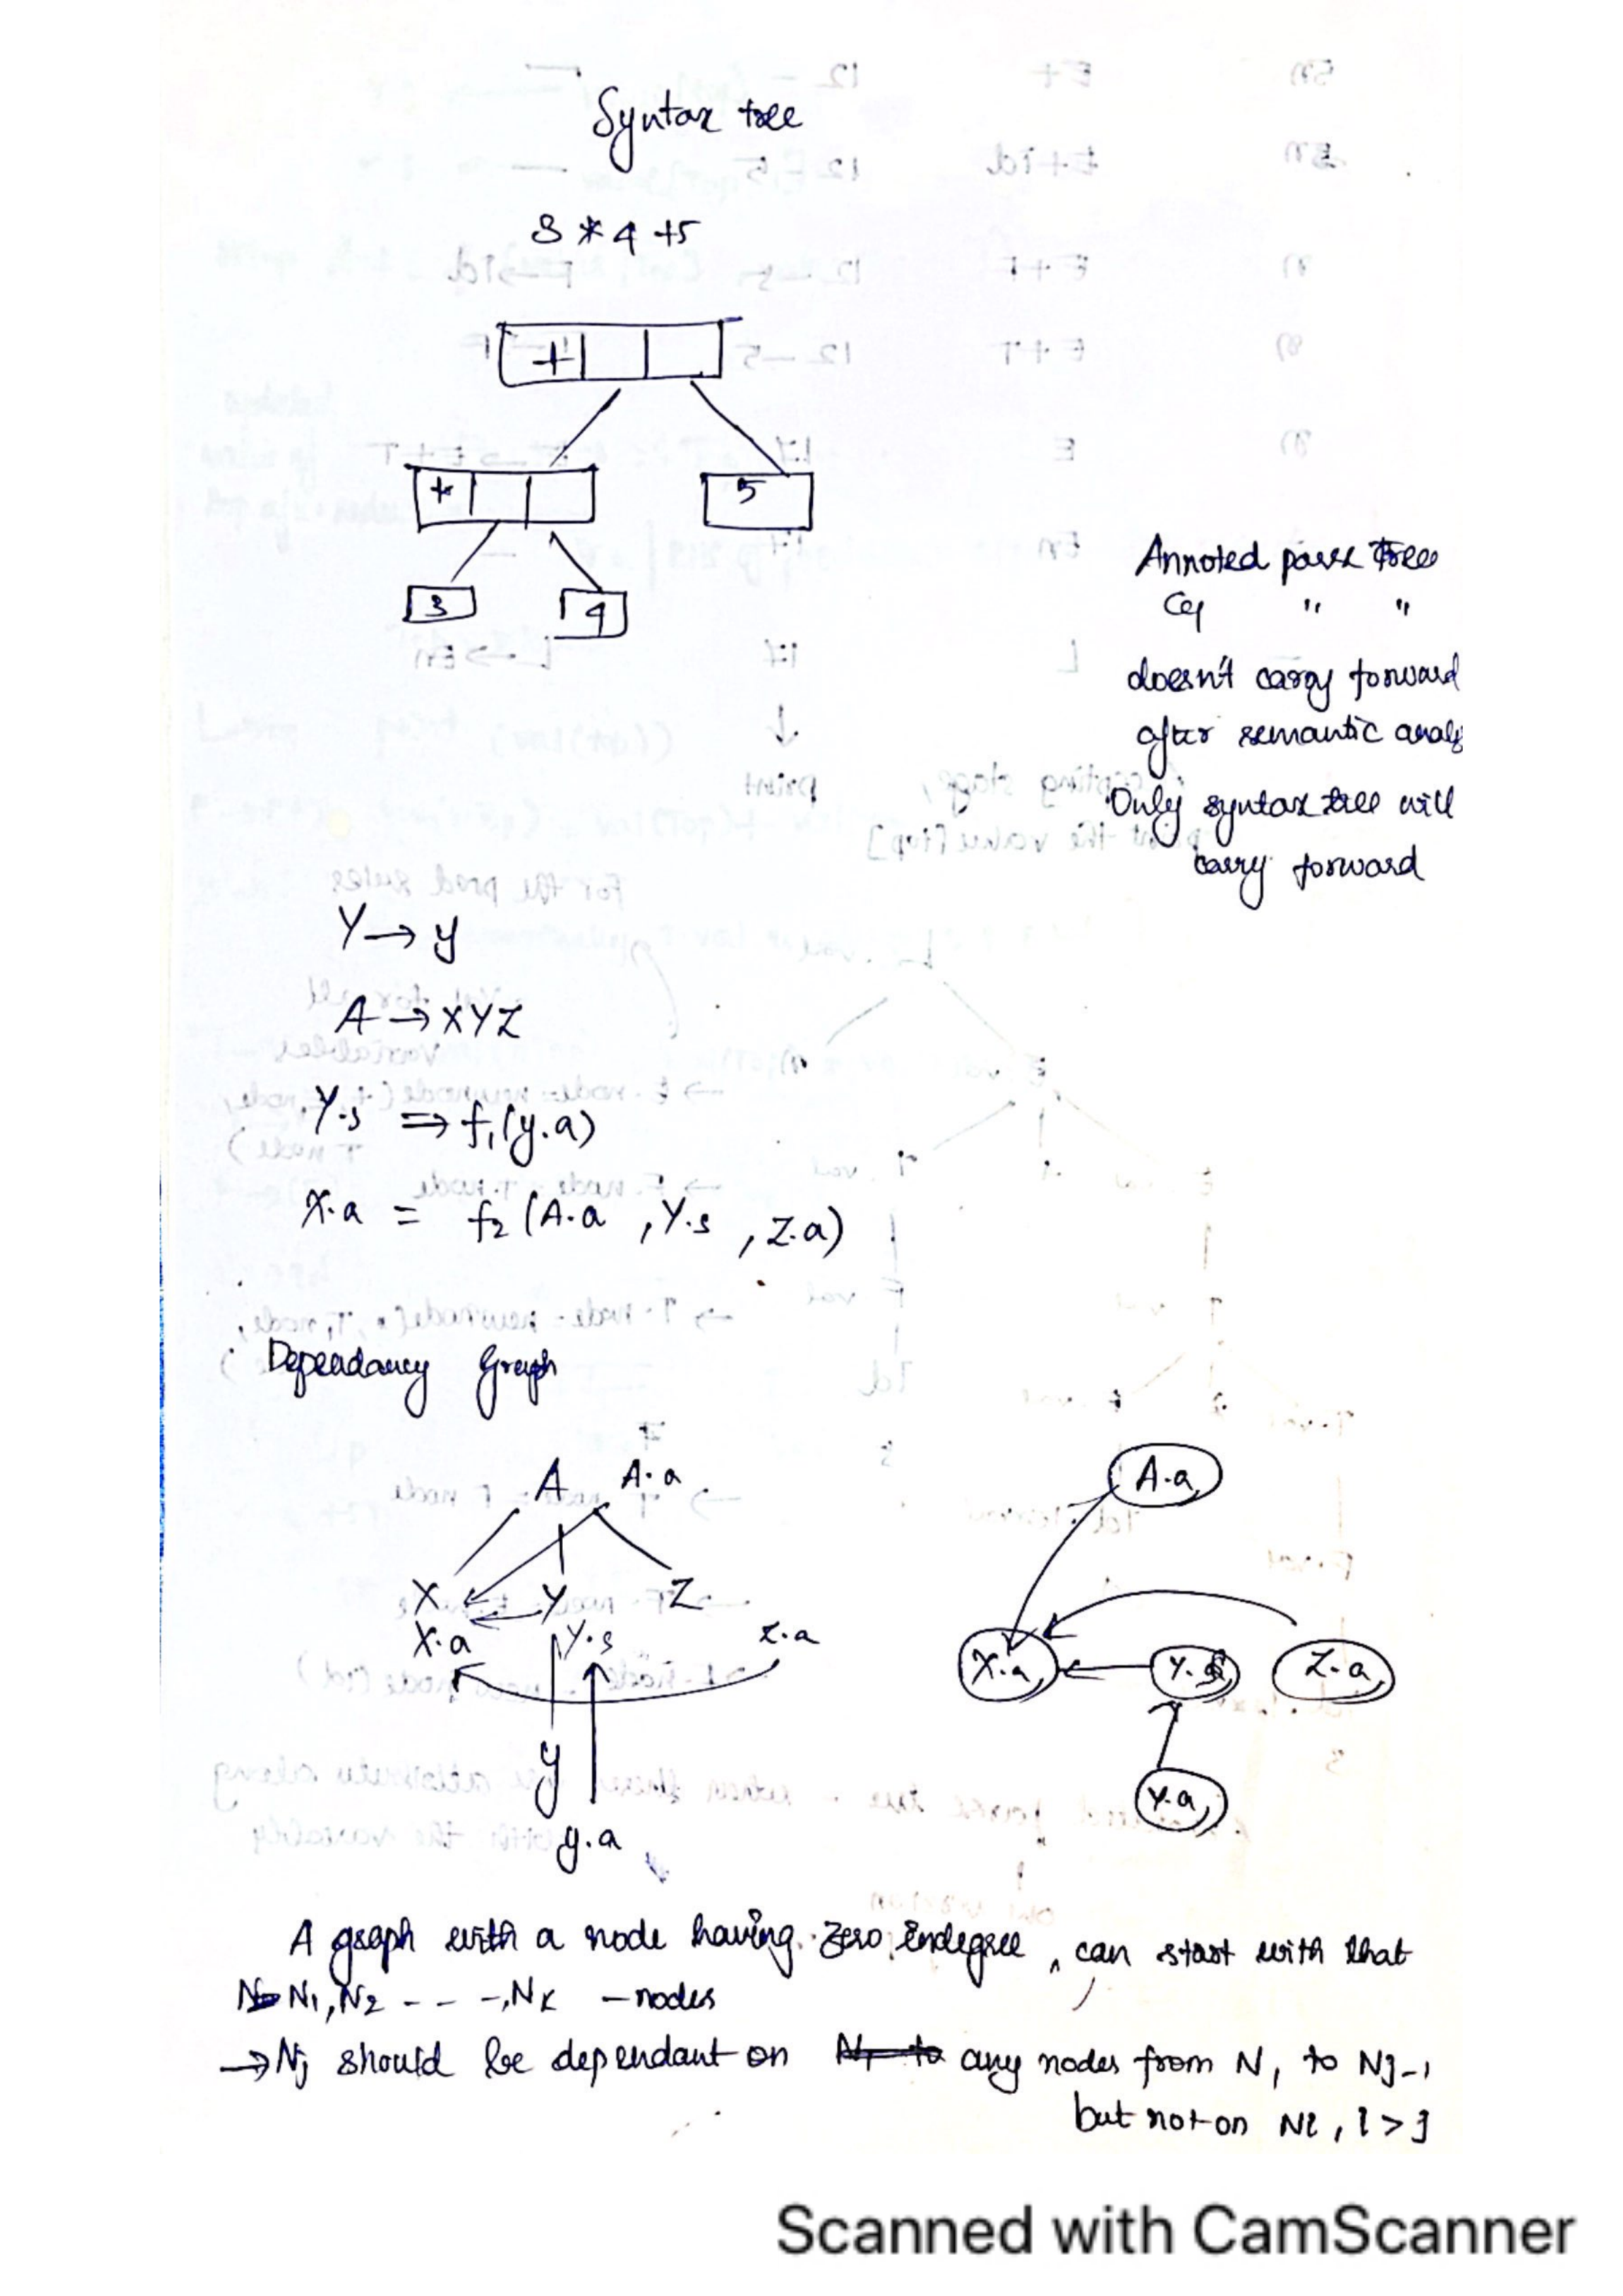 Syntax tree
3 * 4 +5
+
* 5
3 4
Annoted parse tree
" "
doesn't carry forward
after semantic analy
Only syntax tree will
carry forward
Y → y
A → XYZ
Y.s ⇒ f₁(y.a)
X.a = f₂ (A.a , Y.s , Z.a)
Dependancy Graph
A A.a
X Y Z
X.a Y.s z.a
y
y.a
A.a
X.a Y.s Z.a
Y.a
A graph with a node having zero indegree, can start with that
N₁, N₂ - - - -, Nk — nodes
→ Nj should be dependant on any nodes from N₁ to Nj-1
but not on Ni, i > j
Scanned with CamScanner